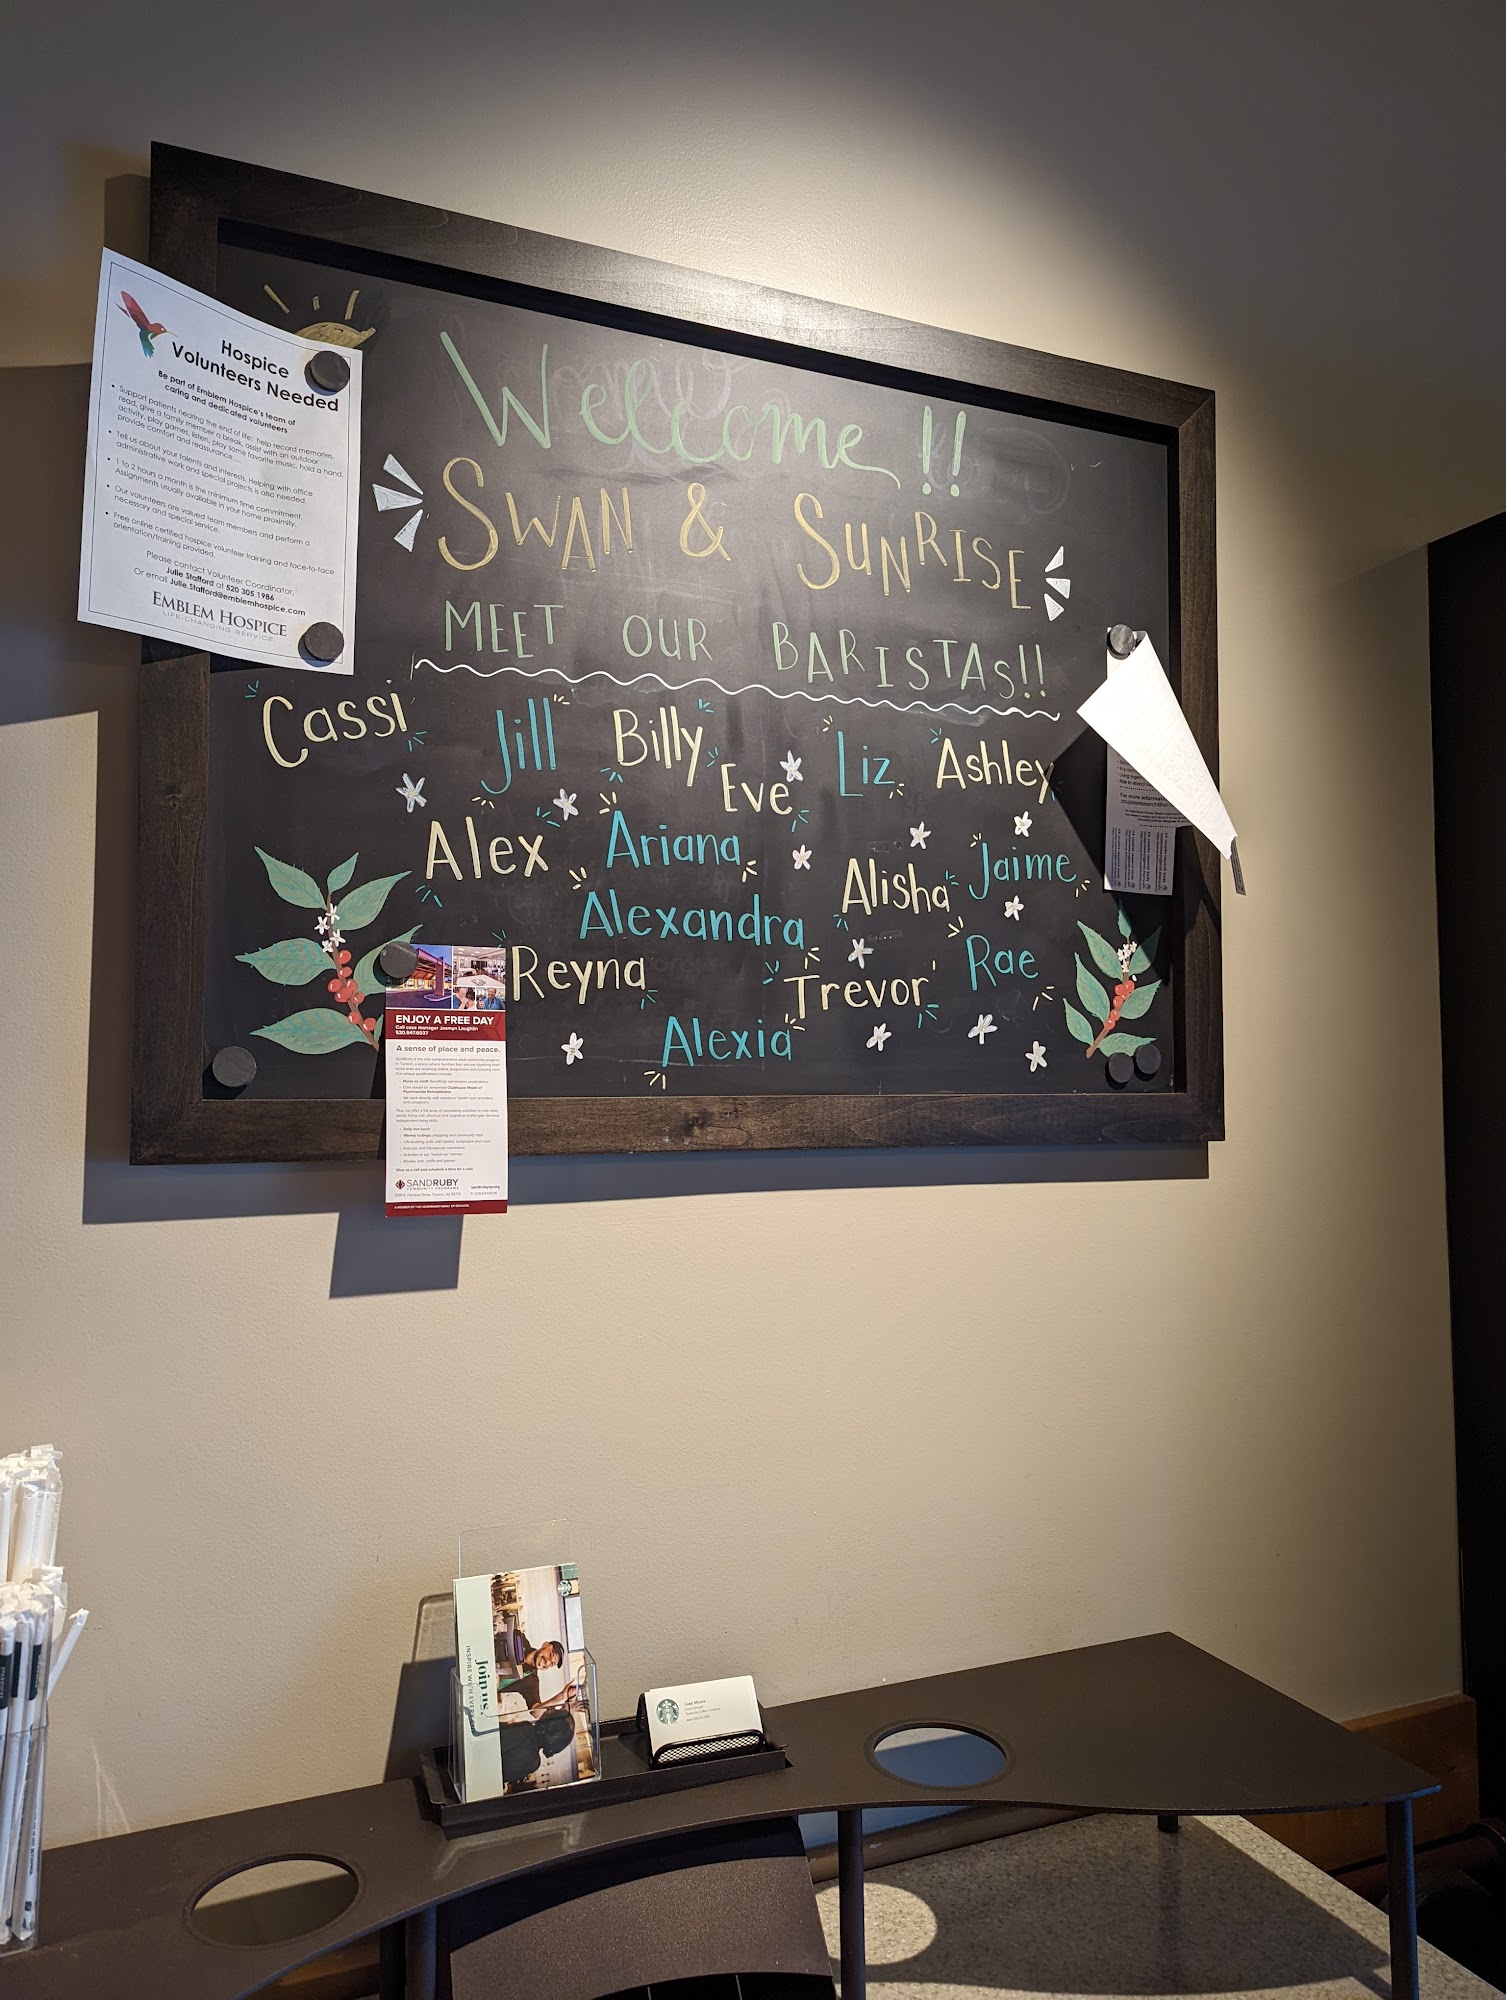 Welcome!!
SWAN & SUNRISE
MEET OUR BARISTAS!!
Cassi
Jill
Billy
Eve
Liz
Ashley
Alex
Ariana
Alisha
Jaime
Alexandra
Reyna
Trevor
Rae
Alexia
Hospice
Volunteers Needed
Be part of Emblem Hospice's team of
caring and dedicated volunteers
• Support patients nearing the end of life: help record memories,
read, give a family member a break, assist with an outdoor
activity, play games, listen, play some favorite music, hold a hand,
provide comfort and reassurance...
• Tell us about your talents and interests. Helping with office
administrative work and special projects is also needed.
• 1 to 2 hours a month is the minimum time commitment.
Assignments usually available in your home proximity.
• Our volunteers are valued team members and perform a
necessary and special service.
• Free online certified hospice volunteer training and face-to-face
orientation/training provided.
Please contact Volunteer Coordinator,
Julie Stafford at 520 305 1986
Or email Julie.Stafford@emblemhospice.com
EMBLEM HOSPICE
LIFE-CHANGING SERVICE
ENJOY A FREE DAY
Call case manager Jasmyn Laughlin
520.547.6037
A sense of place and peace.
Give us a call and schedule a time for a visit.
SANDRUBY
COMMUNITY PROGRAMS
sandrubycp.org
For more information
Join us.
INSPIRE WITH EVERY